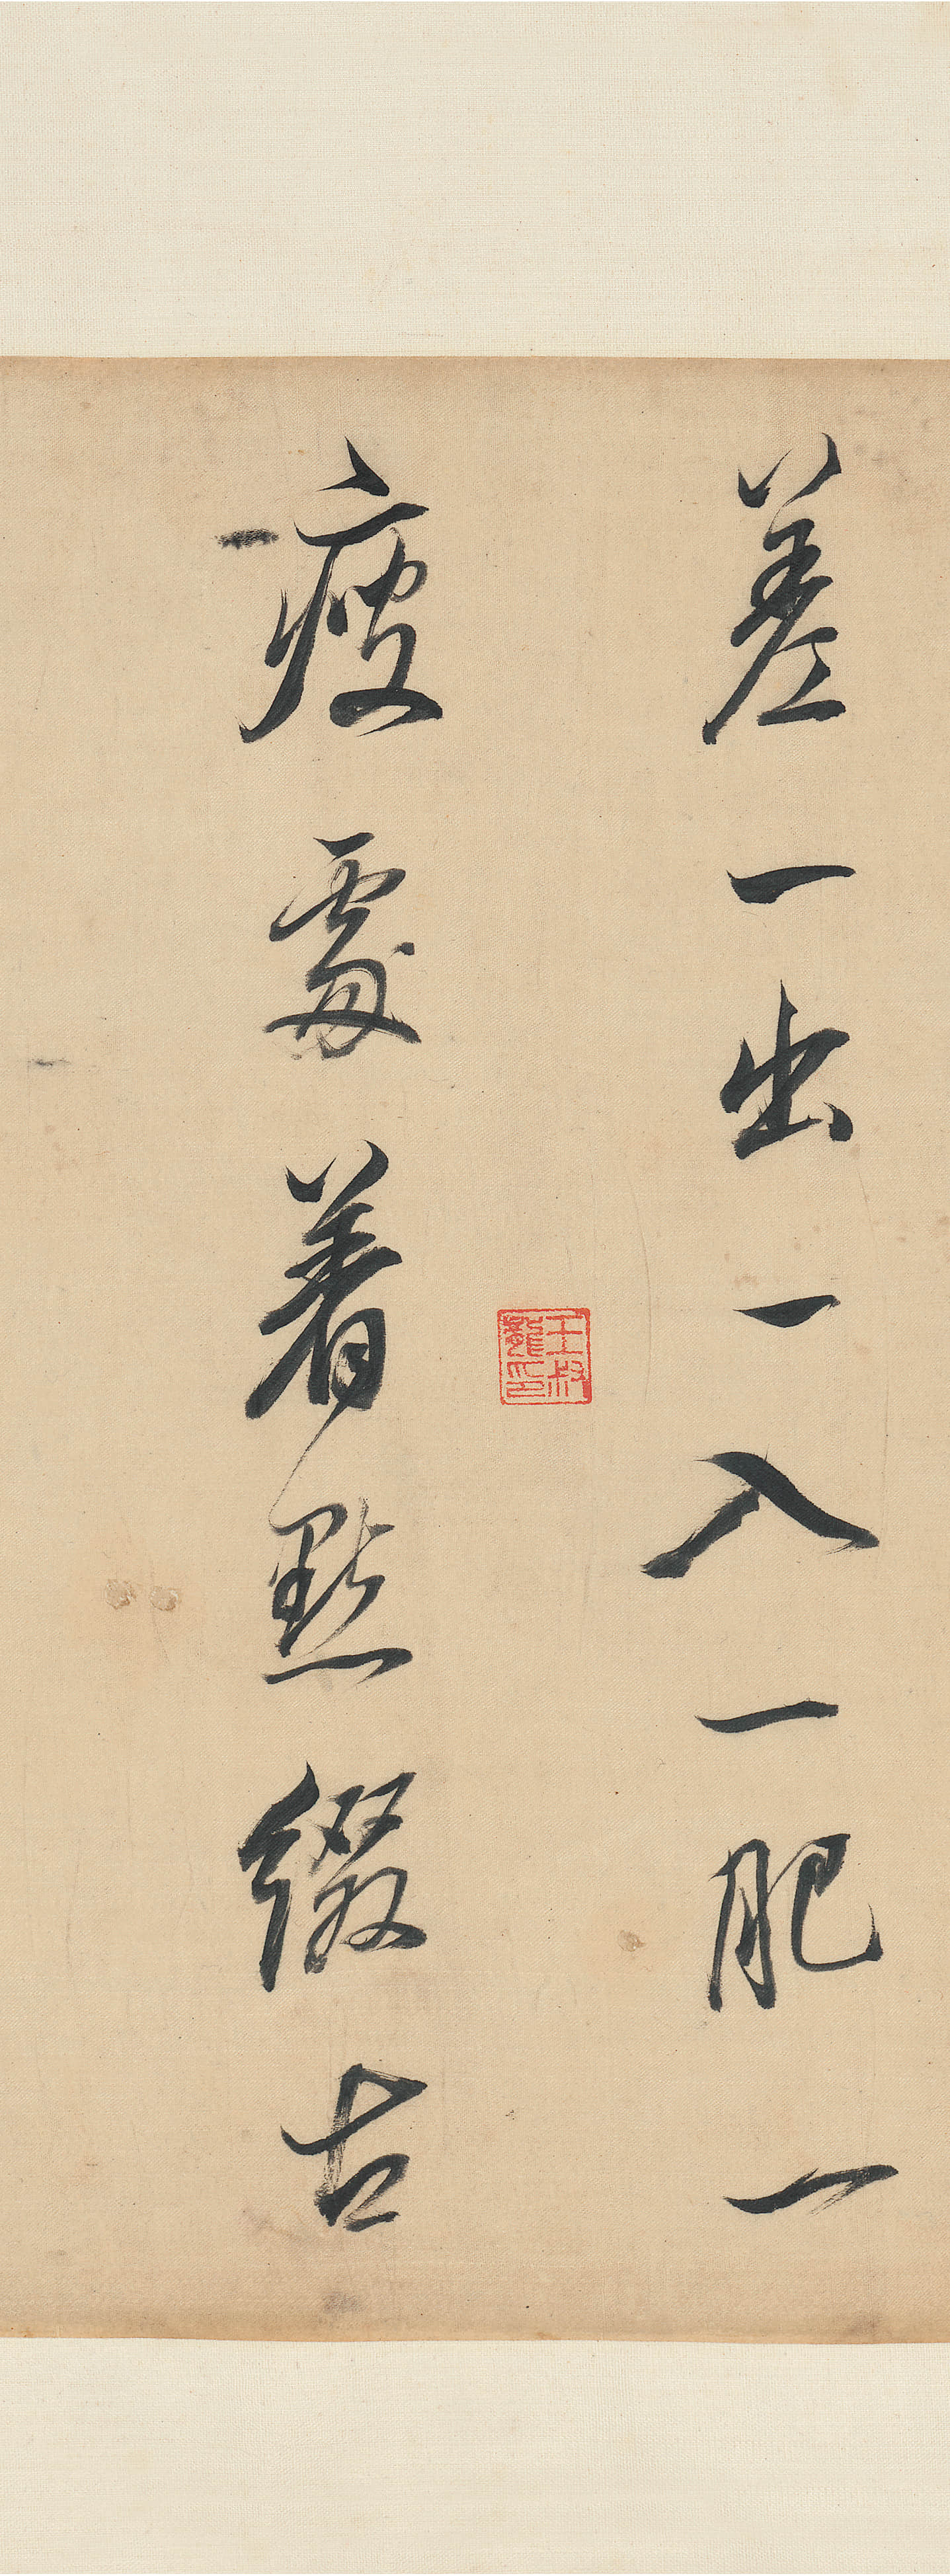 差一出一入一肥一
瘦處着點綴古
王叔
印